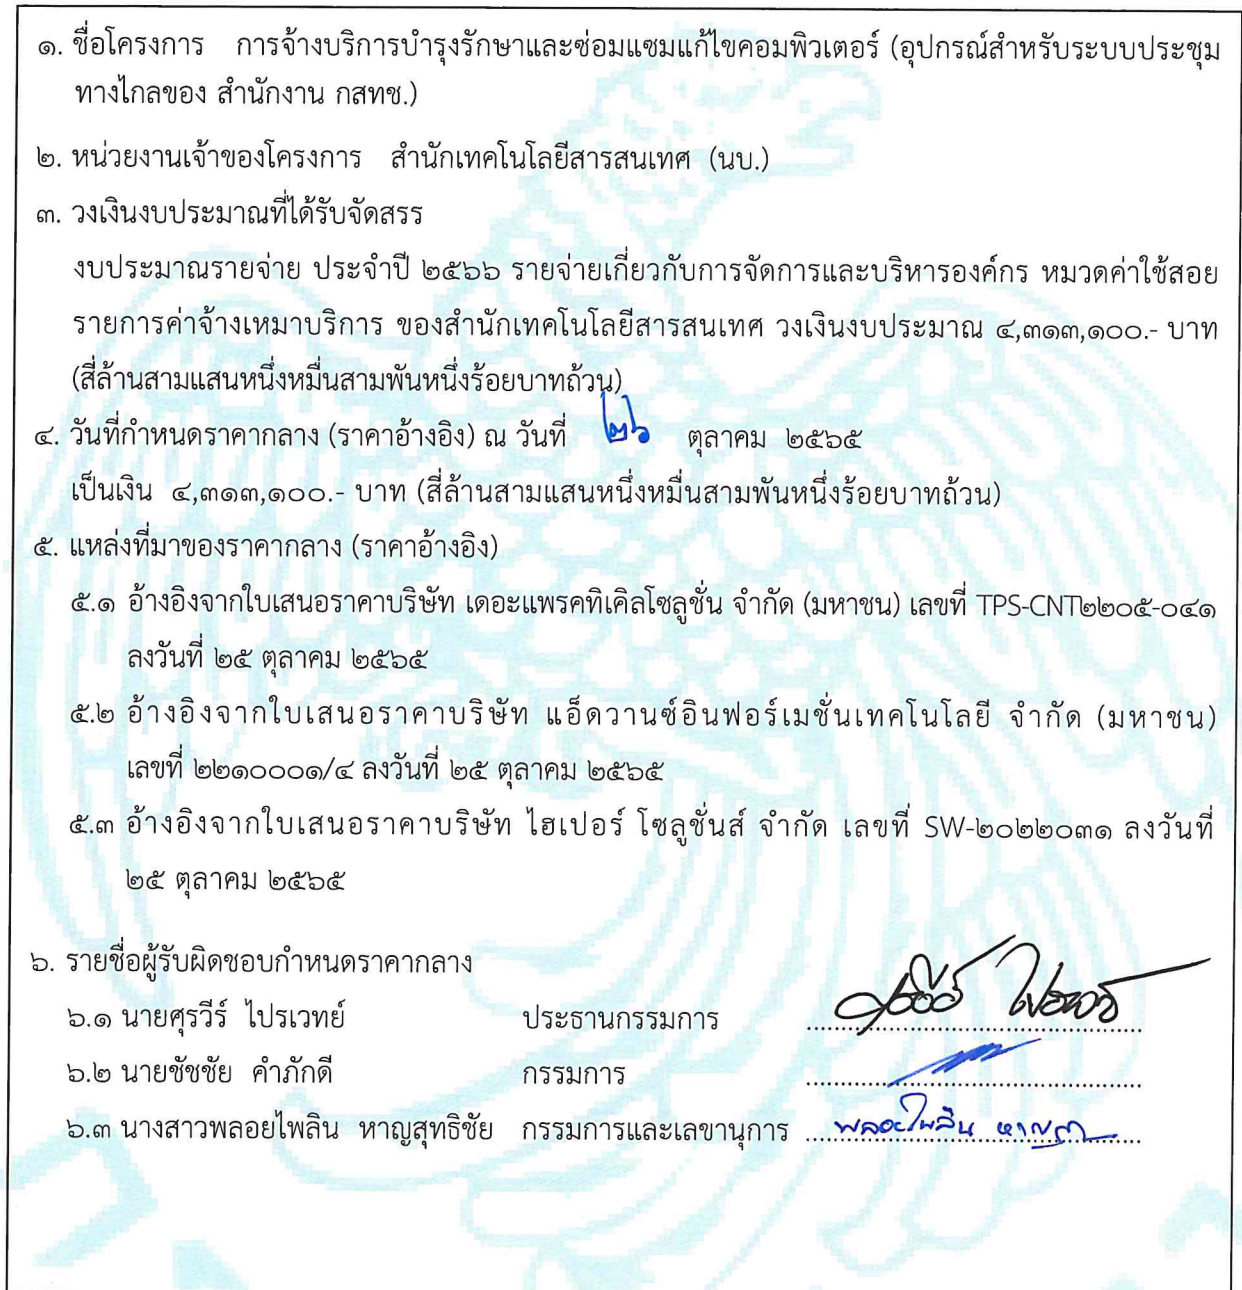 ๑. ชื่อโครงการ การจ้างบริการบำรุงรักษาและซ่อมแซมแก้ไขคอมพิวเตอร์ (อุปกรณ์สำหรับระบบประชุม
ทางไกลของ สำนักงาน กสทช.)
๒. หน่วยงานเจ้าของโครงการ สำนักเทคโนโลยีสารสนเทศ (นบ.)
๓. วงเงินงบประมาณที่ได้รับจัดสรร
งบประมาณรายจ่าย ประจำปี ๒๕๖๖ รายจ่ายเกี่ยวกับการจัดการและบริหารองค์กร หมวดค่าใช้สอย
รายการค่าจ้างเหมาบริการ ของสำนักเทคโนโลยีสารสนเทศ วงเงินงบประมาณ ๔,๓๑๓,๑๐๐.- บาท
(สี่ล้านสามแสนหนึ่งหมื่นสามพันหนึ่งร้อยบาทถ้วน)
๔. วันที่กำหนดราคากลาง (ราคาอ้างอิง) ณ วันที่ ๒๖ ตุลาคม ๒๕๖๕
เป็นเงิน ๔,๓๑๓,๑๐๐.- บาท (สี่ล้านสามแสนหนึ่งหมื่นสามพันหนึ่งร้อยบาทถ้วน)
๕. แหล่งที่มาของราคากลาง (ราคาอ้างอิง)
๕.๑ อ้างอิงจากใบเสนอราคาบริษัท เดอะแพรคทิเคิลโซลูชั่น จำกัด (มหาชน) เลขที่ TPS-CNT๒๒๐๕-๐๔๑
ลงวันที่ ๒๕ ตุลาคม ๒๕๖๕
๕.๒ อ้างอิงจากใบเสนอราคาบริษัท แอ็ดวานซ์อินฟอร์เมชั่นเทคโนโลยี จำกัด (มหาชน)
เลขที่ ๒๒๑๐๐๐๑/๔ ลงวันที่ ๒๕ ตุลาคม ๒๕๖๕
๕.๓ อ้างอิงจากใบเสนอราคาบริษัท ไฮเปอร์ โซลูชั่นส์ จำกัด เลขที่ SW-๒๐๒๒๐๓๑ ลงวันที่
๒๕ ตุลาคม ๒๕๖๕
๖. รายชื่อผู้รับผิดชอบกำหนดราคากลาง
๖.๑ นายศุรวีร์ ไปรเวทย์ ประธานกรรมการ
๖.๒ นายชัชชัย คำภักดี กรรมการ
๖.๓ นางสาวพลอยไพลิน หาญสุทธิชัย กรรมการและเลขานุการ พลอยไพลิน